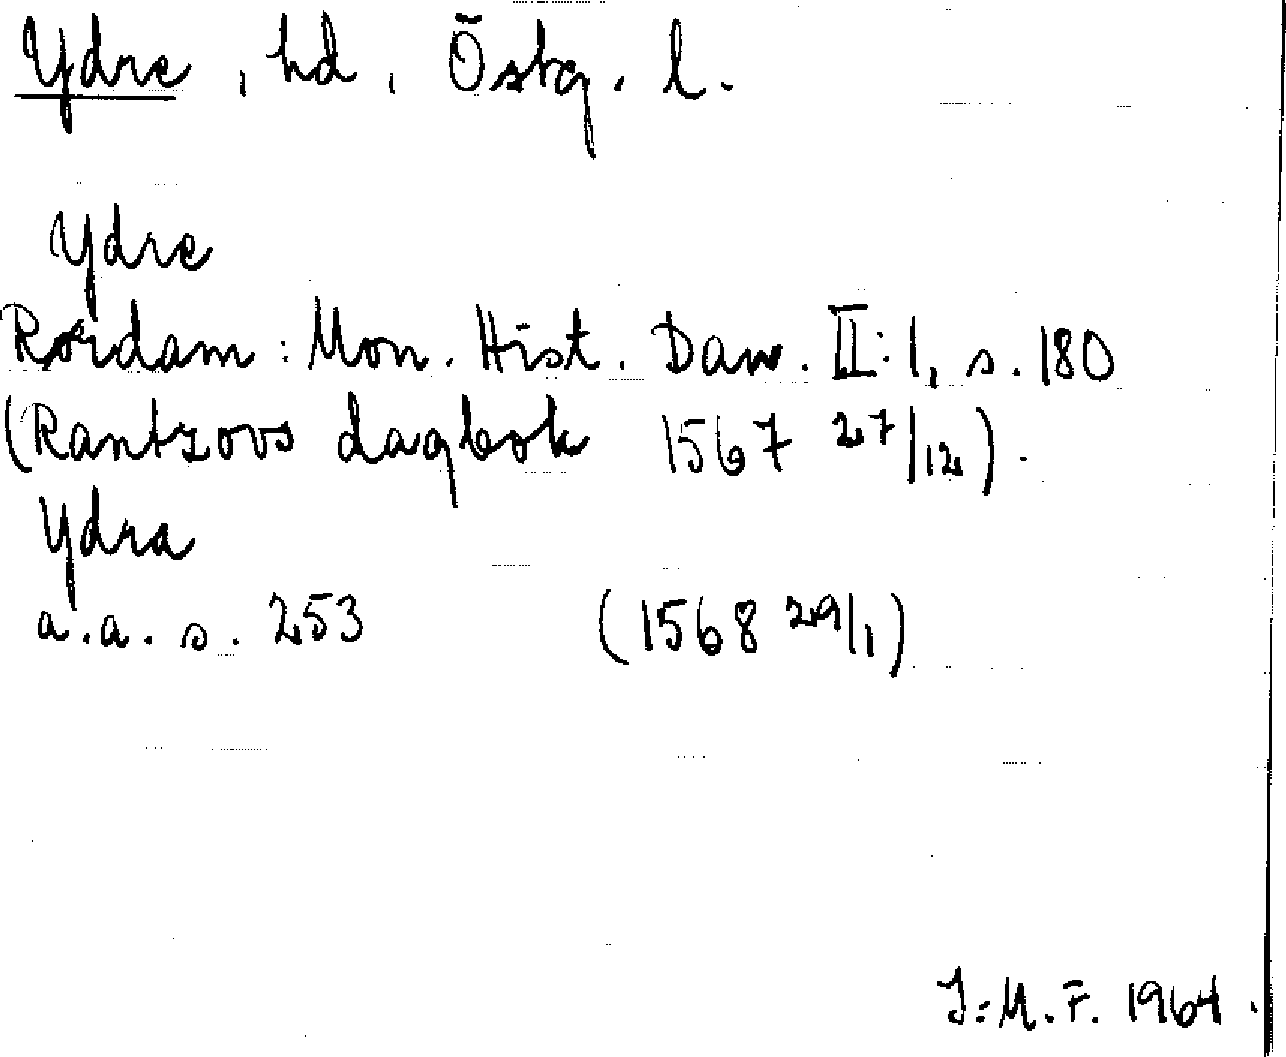 Ydre, hd, Östg. l.
Ydre
Rørdam: Mon. Hist. Dan. II:1, s. 180
(Rantzovs dagbok 1567 27/12).
Ydra
a.a. s. 253 (1568 29/1)
J:M.F. 1964.